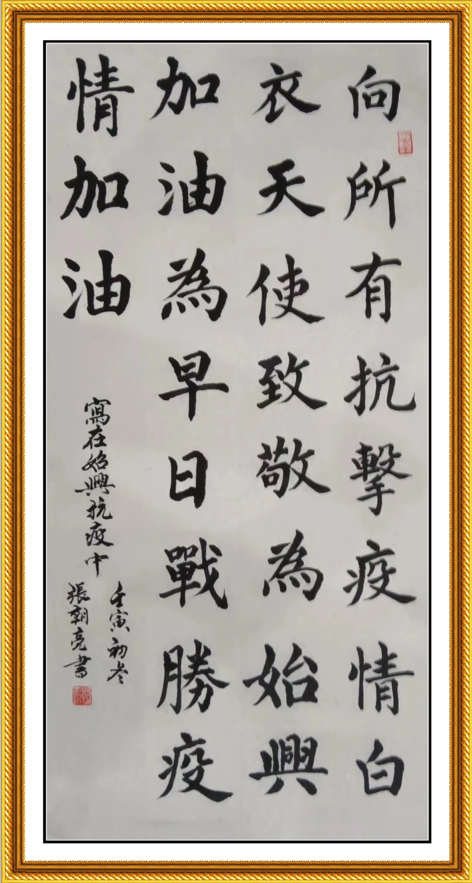 向所有抗擊疫情白
衣天使致敬為始興
加油為早日戰勝疫
情加油
寫在始興抗疫中
壬寅初冬
張朝亮書